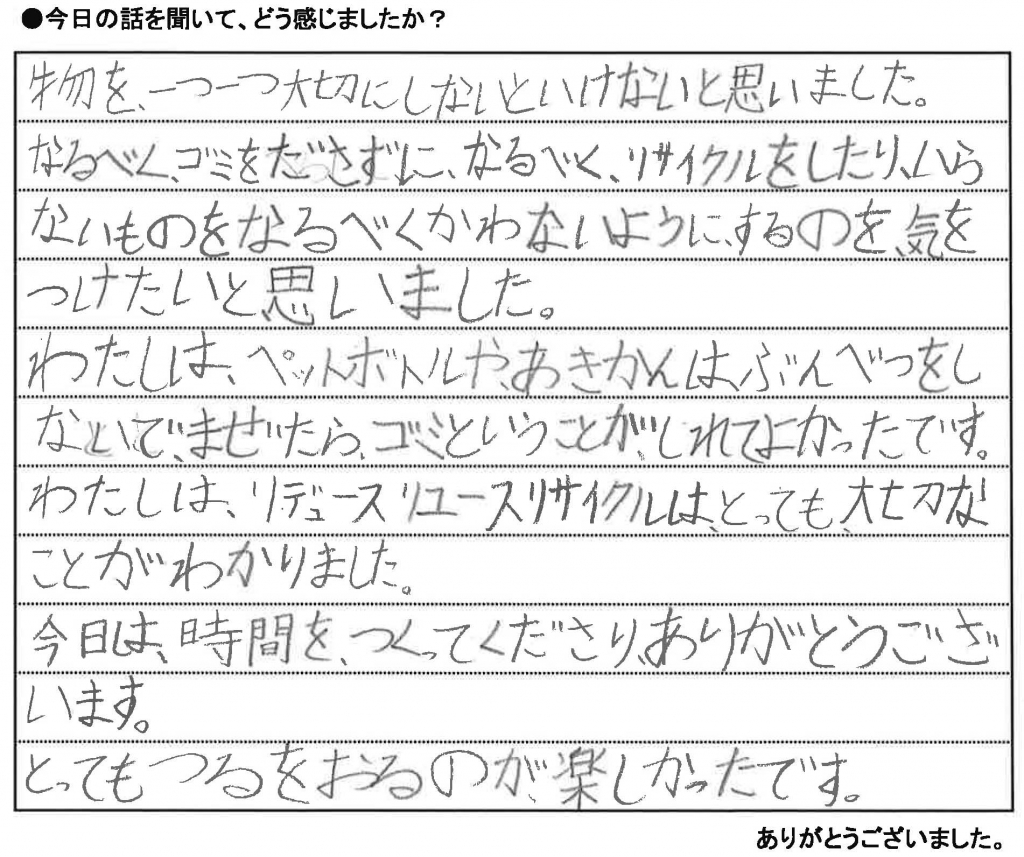 ●今日の話を聞いて、どう感じましたか？
物を、一つ一つ大切にしないといけないと思いました。
なるべく、ゴミをださずに、なるべく、リサイクルをしたり、いら
ないものをなるべくかわないように、するのを、気を
つけたいと、思いました。
わたしは、ペットボトルや、あきかんは、ぶんべつをし
ないで、まぜたら、ゴミということが、しれてよかったです。
わたしは、リデュースリユースリサイクルは、とっても、大切な
ことがわかりました。
今日は、時間を、つくってくださり、ありがとうござ
います。
とってもつるをおるのが、楽しかったです。
ありがとうございました。